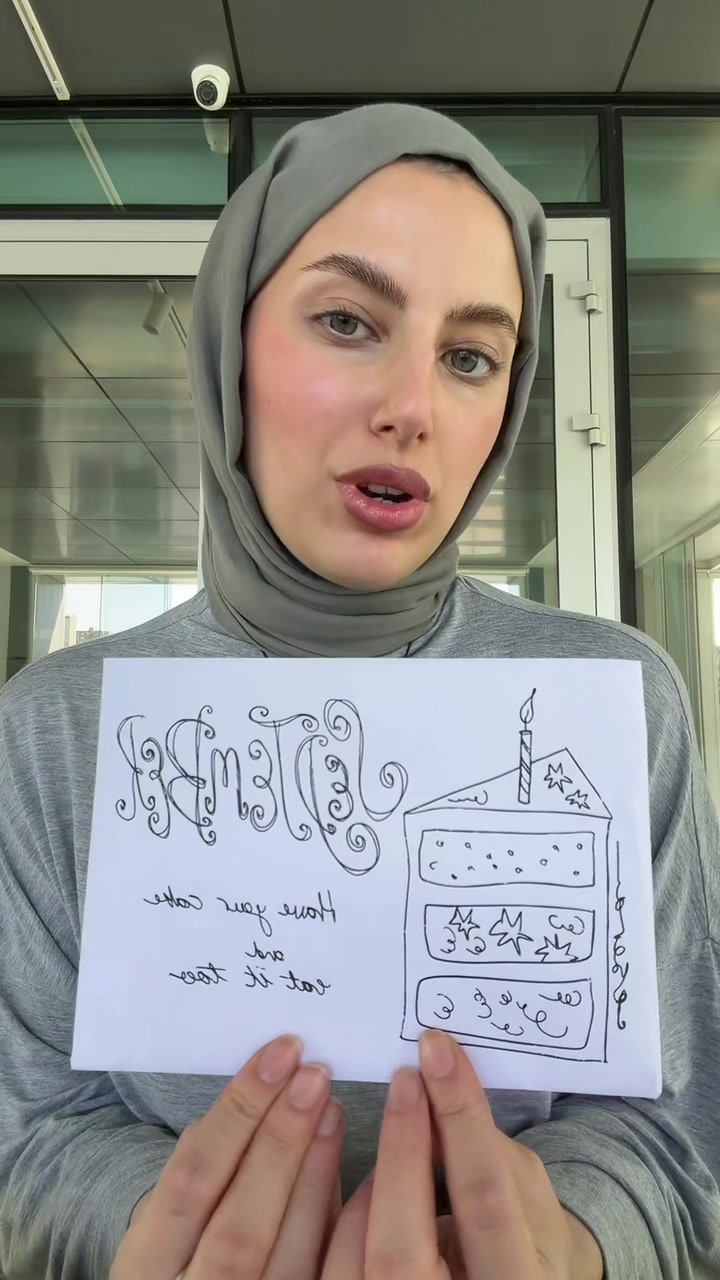 SEPTEMBER
Have your cake
and
eat it too